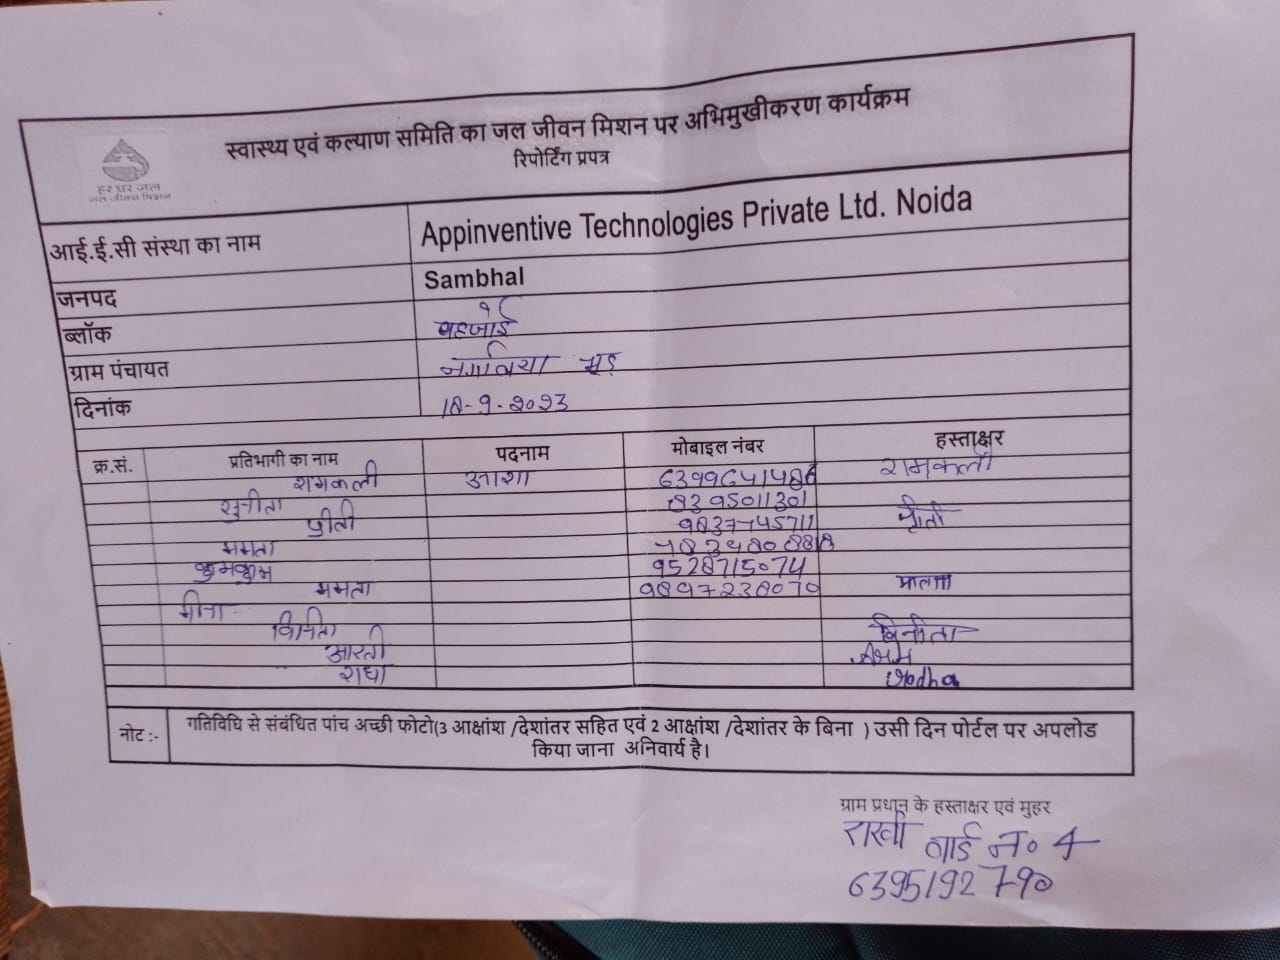 स्वास्थ्य एवं कल्याण समिति का जल जीवन मिशन पर अभिमुखीकरण कार्यक्रम
रिपोर्टिंग प्रपत्र
हर घर जल
जल जीवन मिशन
आई.ई.सी संस्था का नाम Appinventive Technologies Private Ltd. Noida
जनपद Sambhal
ब्लॉक
ग्राम पंचायत
दिनांक
क्र.सं. प्रतिभागी का नाम पदनाम मोबाइल नंबर हस्ताक्षर
रामकली आशा 6399641486 रामकली
सुनीता 8395011301
प्रीती 9837745711 प्रीती
ममता
कुमकुम 9528715074
ममता 9897238070
मीना
विनिता विनीता
आरती
राधा
नोट :- गतिविधि से संबंधित पांच अच्छी फोटो(3 आक्षांश /देशांतर सहित एवं 2 आक्षांश /देशांतर के बिना ) उसी दिन पोर्टल पर अपलोड
किया जाना अनिवार्य है।
ग्राम प्रधान के हस्ताक्षर एवं मुहर
राखी वार्ड न० 4
6395192790